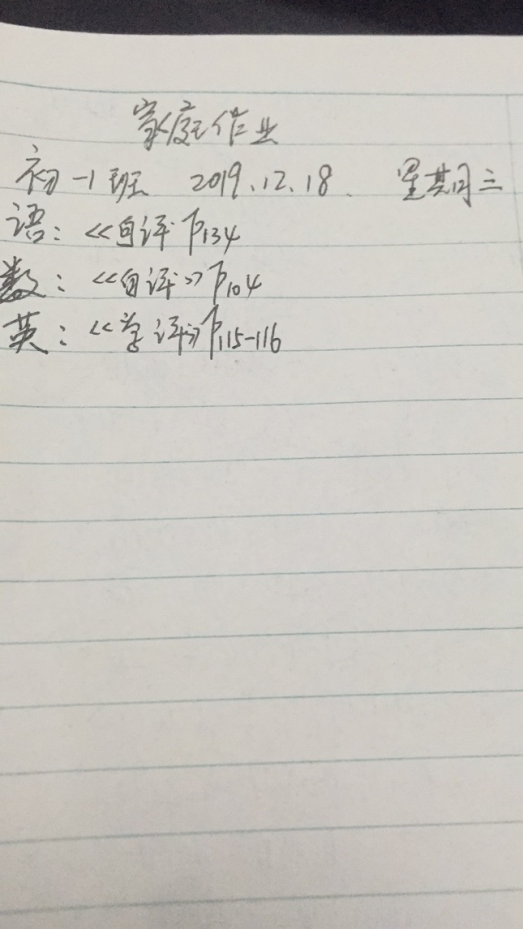 家庭作业
初一1班 2019.12.18. 星期三
语：《自评 P134
数：《自评》P104
英：《学评》P115-116